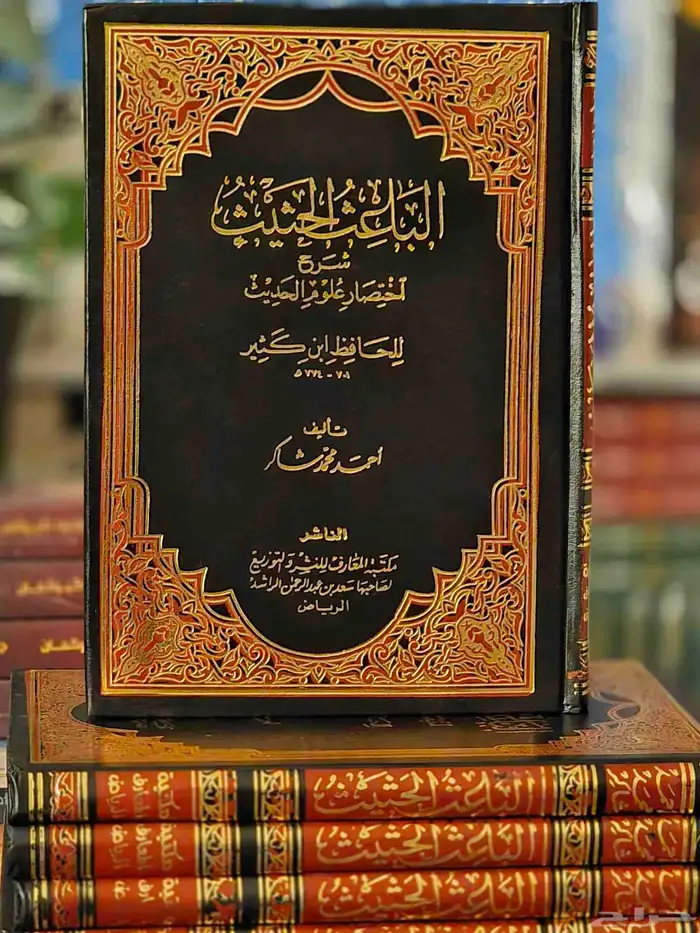 الباعث الحثيث
شرح
اختصار علوم الحديث
للحافظ ابن كثير
٧٠١ - ٧٧٤ ه
تأليف
أحمد محمد شاكر
الناشر
مكتبة المعارف للنشر والتوزيع
لصاحبها سعد بن عبد الرحمن الراشد
الرياض
الباعث الحثيث
الباعث الحثيث
الباعث الحثيث
حراج